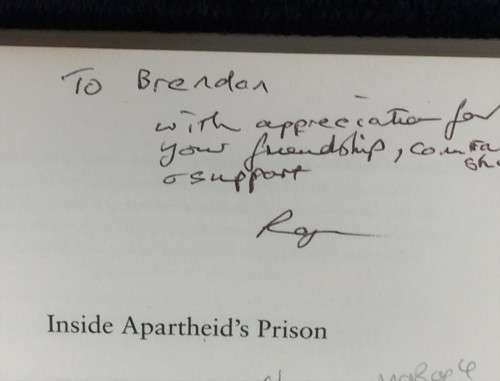 To Brendan
with appreciation for
your friendship, comra
sh
& support
Ray
Inside Apartheid's Prison